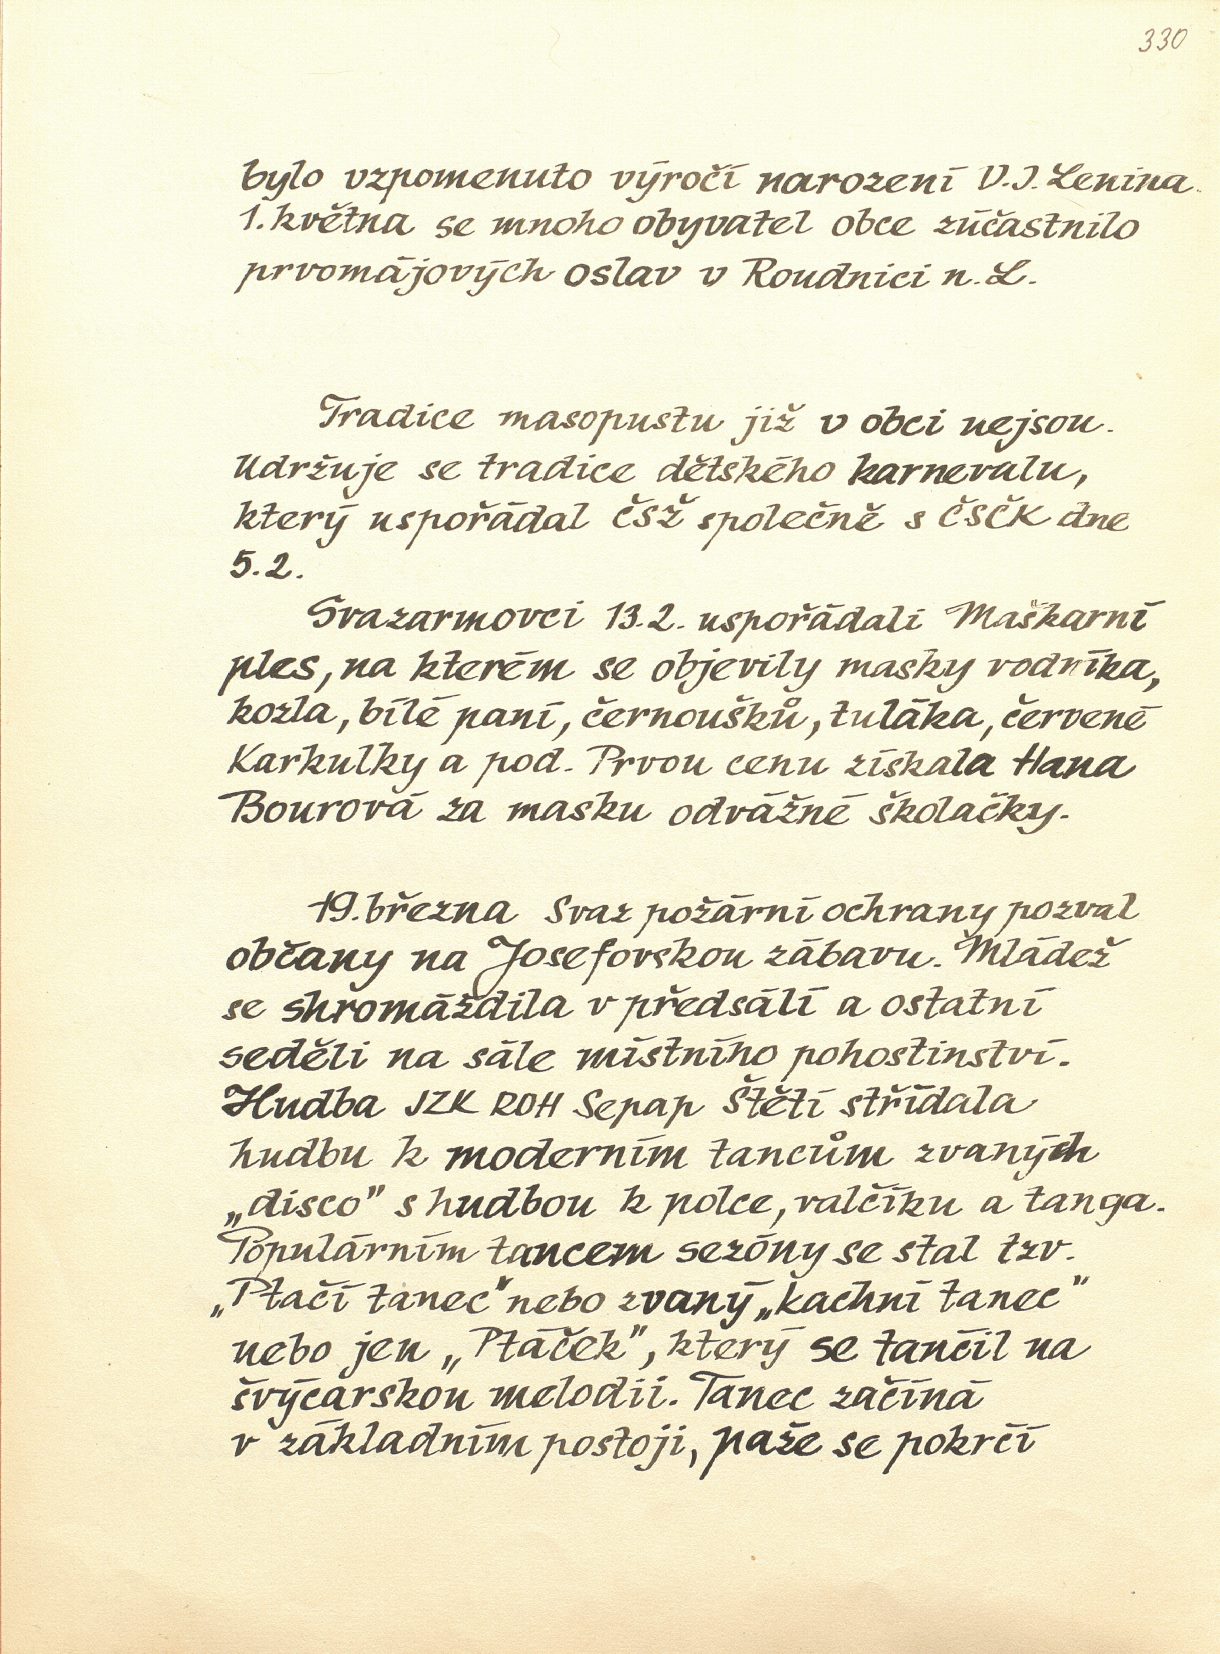 330
bylo vzpomenuto výročí narození V.I. Lenina.
1. května se mnoho obyvatel obce zúčastnilo
prvomájových oslav v Roudnici n. L.
Tradice masopustu již v obci nejsou.
Udržuje se tradice dětského karnevalu,
který uspořádal ČSŽ společně s ČSČK dne
5.2.
Svazarmovci 13.2. uspořádali Maškarní
ples, na kterém se objevily masky vodníka,
kozla, bílé paní, černoušků, tuláka, červené
Karkulky a pod. Prvou cenu získala Hana
Bourová za masku odvážné školačky.
19. března Svaz požární ochrany pozval
občany na Josefovskou zábavu. Mládež
se shromáždila v předsálí a ostatní
seděli na sále místního pohostinství.
Hudba JZK ROH Sepap Štětí střídala
hudbu k moderním tancům zvaných
„disco" s hudbou k polce, valčíku a tanga.
Populárním tancem sezóny se stal tzv.
„Ptačí tanec" nebo zvaný „kachní tanec"
nebo jen „Ptáček", který se tančil na
švýcarskou melodii. Tanec začíná
v základním postoji, paže se pokrčí